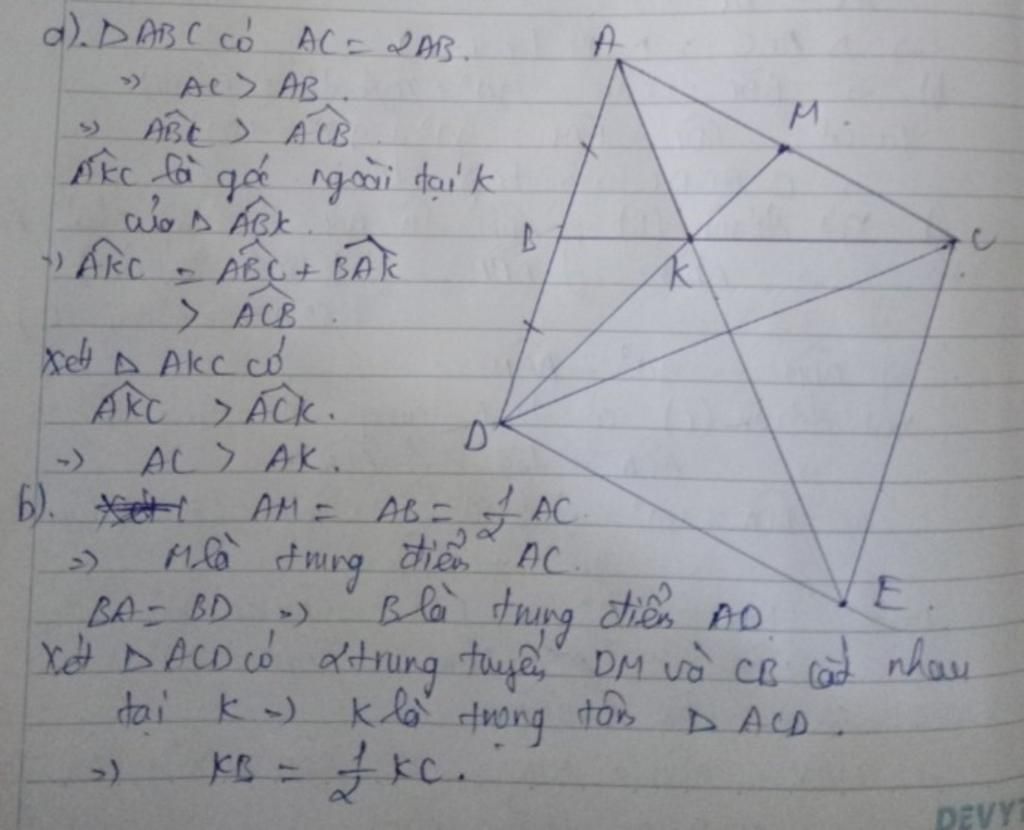 a). Δ ABC có AC = 2AB.
=> AC > AB.
=> ABC > ACB
AKC là góc ngoài tại K
của Δ ABK.
=> AKC = ABC + BAK
> ACB.
Xét Δ AKC có
AKC > ACK.
=> AC > AK.
b). AM = AB = 1/2 AC
=> M là trung điểm AC.
BA = BD => B là trung điểm AD
Xét Δ ACD có 2 trung tuyến DM và CB cắt nhau
tại K => K là trọng tâm Δ ACD.
=> KB = 1/2 KC.
A
M
B
K
C
D
E
DEVY